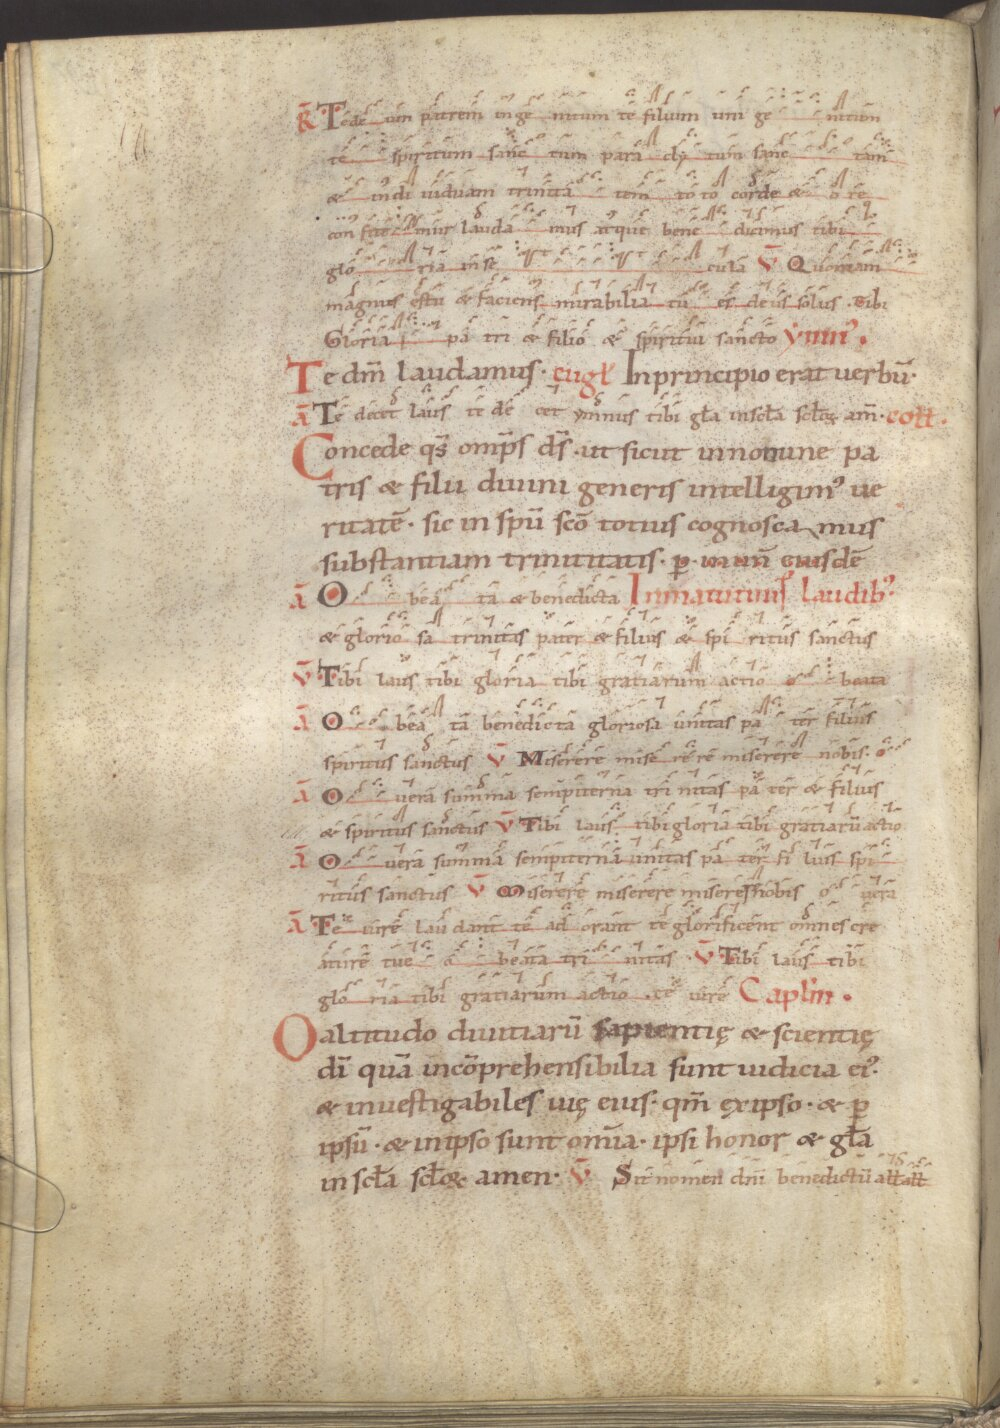 R̄ Te dēū patrem inge nitum te filium uni ge nitum
te spiritum sanc tum para cly tum sanc tam
& indi uiduam trinita tem toto corde & o re
confite mur lauda mus atque bene dicimus tibi
glo ria in se cula V̄ Quoniam
magnus es tu & faciens mirabilia tu es deus solus. Tibi
Gloria pa tri & filio & spiritui sancto ymn᾿.
Te dm̄ laudamus. eugl̄ In principio erat uerbū.
Ā Te decet laus te de cet ymnus tibi gl̄a in scl̄a scl̄oꝝ am̄. coll̄.
Concede qs̄ omp̄s ds̄. ut sicut in nomine pa
tris & filii diuini generis intelligim᾿ ue
ritatē. sic in spū scō totius cognosca mus
substantiam trinitatis. ꝑ. in un̄ eiusdē
Ā O bea ta & benedicta In matutinis laudib᾿.
& glorio sa trinitas pater & filius & spi ritus sanctus
V̄ Tibi laus tibi gloria tibi gratiarum actio o beata
Ā O bea ta benedicta gloriosa unitas pa ter filius
spiritus sanctus V̄ Miserere mise rere miserere nobis. o
Ā O uera summa sempiterna tri nitas pa ter & filius
& spiritus sanctus V̄ Tibi laus tibi gloria tibi gratiarū actio
Ā O uera summa sempiterna unitas pa ter fi lius spi
ritus sanctus V̄ Miserere miserere miserere nobis o uera
Ā Te iure lau dant te ad orant te glorificent omnes cre
ature tue o beata tri nitas. V̄ Tibi laus tibi
glo ria tibi gratiarum actio. te iure Capl̄m.
O altitudo diuitiarū sapientię & scientię
dī quā incōprehensibilia sunt iudicia ei᾿.
& inuestigabiles uię eius. qm̄ ęx ipso. & ꝑ
ipsū. & in ipso sunt om̄ia. ipsi honor & gl̄a
in scl̄a scl̄oꝝ. amen. V̄ Sit nomen dn̄i benedictū all̄ all̄